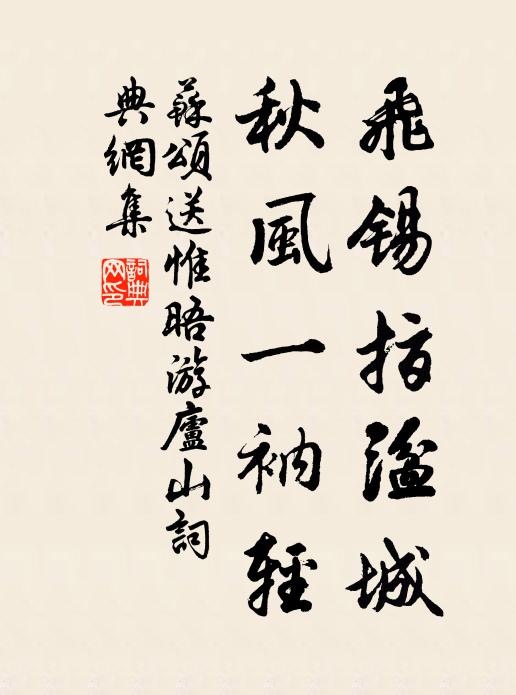 飛錫指湓城
秋風一衲輕
蘇頌送惟晤游廬山詞
典網集
詞典网印